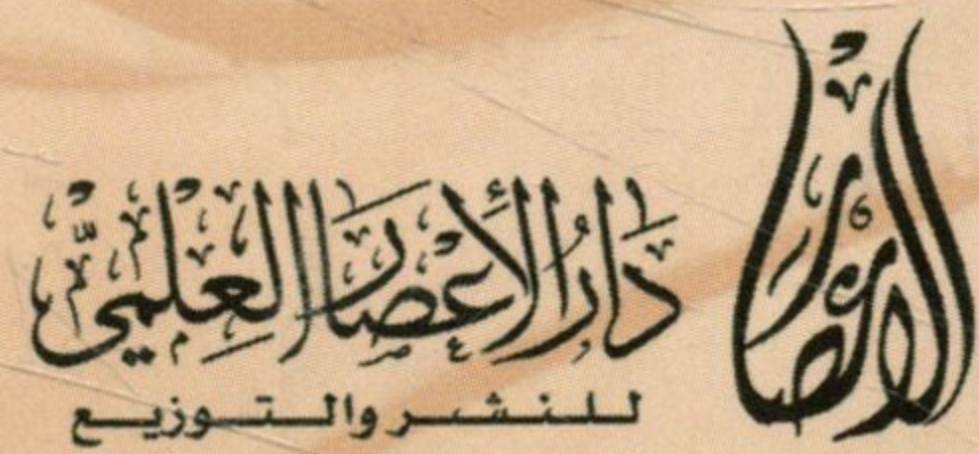 الإعصار
دَارُ الأَعْصَار العِلْمِيّ
للنشر والتوزيع